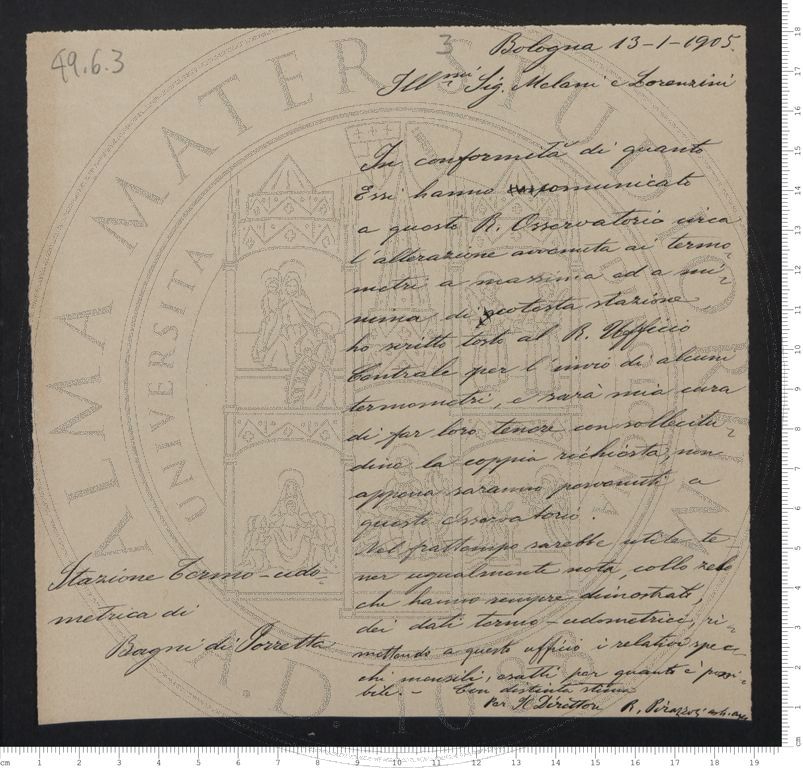 49.6.3
3
Bologna 13-1-1905.
Ill.mi Sig. Melani e Lorenzini
In conformità di quanto
Essi hanno comunicato
a questo R. Osservatorio circa
l'alterazione avvenuta ai termo-
metri a massima ed a mi-
nima di cotesta stazione
ho scritto tosto al R. Ufficio
Centrale per l'invio di alcuni
termometri, e sarà mia cura
di far loro tenere con sollecitu-
dine la coppia richiesta, non
appena saranno pervenuti a
questo Osservatorio.
Nel frattempo sarebbe utile te-
ner ugualmente nota, collo zelo
che hanno sempre dimostrato,
dei dati termo-udometrici, ri-
mettendo a questo ufficio i relativi spec-
chi mensili, esatti per quanto è possi-
bili. - Con distinta stima
Per Il Direttore R. Pirazzoli
Stazione Termo-udo-
metrica di
Bagni di Porretta
ALMA MATER STUDIORUM
UNIVERSITA
A.D. 1088